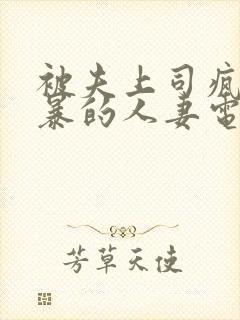 被夫上司疯
暴的人妻电
芳草天使